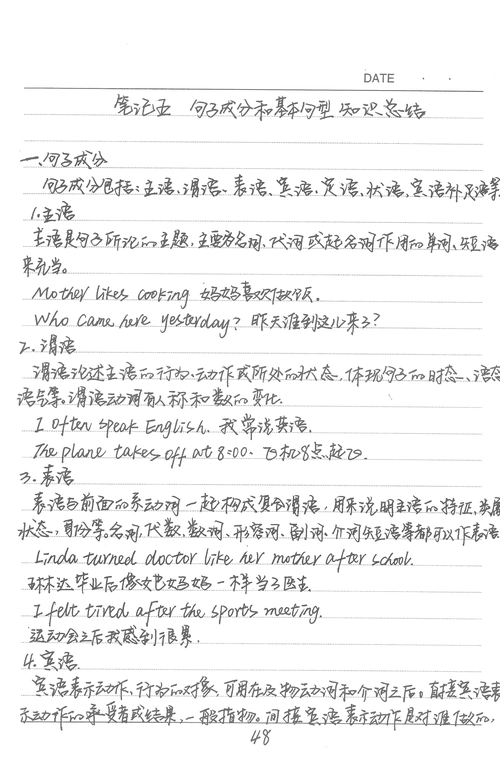 DATE · ·
笔记五 句子成分和基本句型 知识总结
一、句子成分
句子成分包括:主语、谓语、表语、宾语、定语、状语、宾语补足语等
1.主语
主语是句子所论的主题,主要为名词、代词或起名词作用的单词、短语
来充当。
Mother likes cooking 妈妈喜欢做饭.
Who came here yesterday? 昨天谁到这儿来了?
2.谓语
谓语论述主语的行为、动作或所处的状态,体现句子的时态、语态
语气等。谓语动词有人称和数的变化.
I often speak English. 我常说英语.
The plane takes off at 8:00. 飞机8点起飞.
3.表语
表语与前面的系动词一起构成复合谓语,用来说明主语的特征,类属
状态,身份等。名词、代数、数词、形容词、副词、介词短语等都可以作表语
Linda turned doctor like her mother after school.
琳达毕业后像她妈妈一样当了医生.
I felt tired after the sports meeting.
运动会之后我感到很累.
4.宾语.
宾语表示动作、行为的对象,可用在及物动词和介词之后。直接宾语表
示动作的承受者或结果,一般指物。间接宾语表示动作是对谁做的,
48